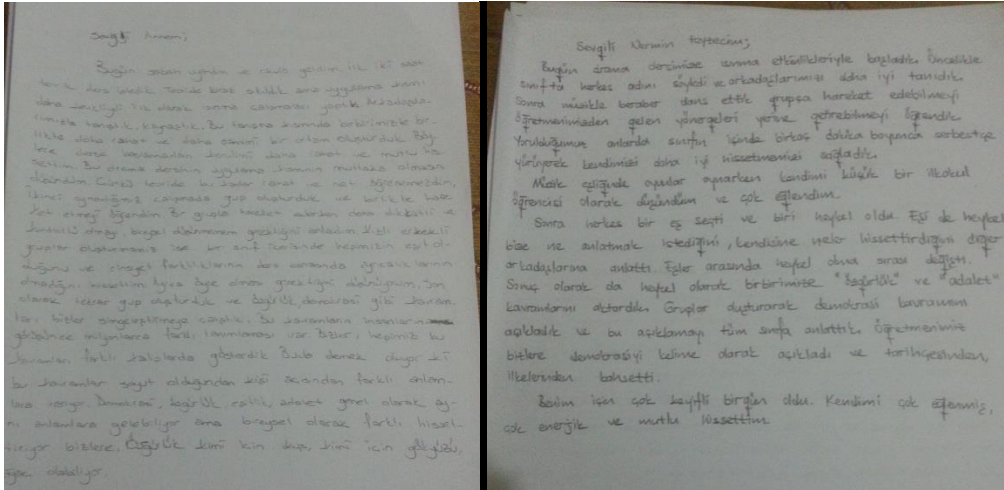 Sevgili Annem;
Bugün sabah uyandım ve okula geldim ilk iki saat
teorik ders işledik. Teoride biraz sıkıldık ama uygulama kısmı
daha iyi
olarak ısınma çalışmaları yaptık. Arkadaşla-
rımızla tanıştık, kaynaştık. Bu tanışma kısmında birbirimizle bir-
likte daha rahat ve daha samimi bir ortam oluşturduk. Böy-
lece derse başlamadan kendimi daha rahat ve mutlu his-
settim. Bu drama dersinin uygulama kısmının mutlaka olmasını
düşündüm. Çünkü teoride bu kadar rahat ve net öğrenemezdim.
İkinci oynadığımız çalışmada grup oluşturduk ve birlikte hare-
ket etmeyi öğrendim. Bir grupla hareket ederken daha dikkatli ve
kontrollü olmayı, bireysel düşünmemem gerektiğini anladım. Kızlı erkekli
gruplar oluşturmamız ise bir sınıf içerisinde hepimizin eşit ol-
duğunu ve cinsiyet farklılıklarının ders esnasında
olmadığını,
olması gerektiğini düşünüyorum. Son
olarak tekrar grup oluşturduk ve özgürlük, demokrasi gibi kavram-
ları bizler simgeleştirmeye çalıştık. Bu kavramların insanların
görüşünce milyonlarca farklı tanımlaması var. Bizler, hepimiz bu
kavramları farklı şekillerde gösterdik. Öyle demek oluyor ki
bu kavramlar soyut olduğundan kişi açısından farklı anlam-
lara varıyor. Demokrasi, özgürlük, eşitlik, adalet genel olarak ay-
nı anlamlara gelebiliyor ama bireysel olarak farklı hisset-
tiriyor bizlere. Özgürlük kimi için kuş, kimi için gökyüzü,
olabiliyor.
Sevgili Nermin teyzecim;
Bugün drama dersimize ısınma etkinlikleriyle başladık. Öncelikle
sınıfta herkes adını söyledi ve arkadaşlarımızı daha iyi tanıdık.
Sonra müzikle beraber dans ettik grupça hareket edebilmeyi
öğretmenimizden gelen yönergeleri yerine getirebilmeyi öğrendik.
Yorulduğumuz anlarda sınıfın içinde birkaç dakika boyunca serbestçe
yürüyerek kendimizi daha iyi hissetmemizi sağladık.
Müzik eşliğinde oyunlar oynarken kendimi küçük bir ilkokul
öğrencisi olarak düşündüm ve çok eğlendim.
Sonra herkes bir eş seçti ve biri heykel oldu. Eşi de heykel
bize ne anlatmak istediğini, kendisine neler hissettirdiğini diğer
arkadaşlarına anlattı. Eşler arasında heykel olma sırası değişti.
Sonuç olarak da heykel olarak birbirimize "özgürlük" ve "adalet"
kavramlarını aktardık. Gruplar oluşturarak demokrasi kavramını
açıkladık ve bu açıklamayı tüm sınıfa anlattık. Öğretmenimiz
bizlere demokrasiyi kelime olarak açıkladı ve tarihçesinden,
ilkelerinden bahsetti.
Benim için çok keyifli birgün oldu. Kendimi çok eğlenmiş,
çok enerjik ve mutlu hissettim.